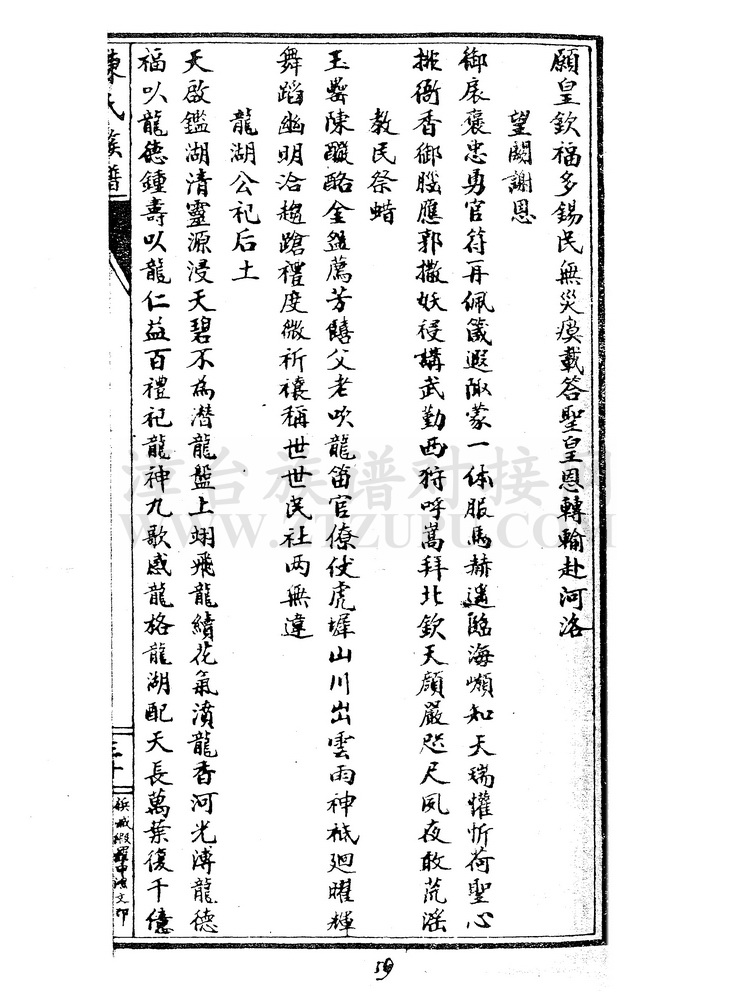 願皇欽福多錫民無災瘼載答聖皇恩轉輸赴河洛
望闕謝恩
御扆褒忠勇官符再佩箴遐陬蒙一体服馬赫遙臨海嶼知天瑞懽忻荷聖心
排衙香御膓應郭撒妖祲講武勤西狩呼嵩拜北欽天顏嚴咫尺夙夜敢荒淫
教民祭蜡
玉罍陳醆酪金盤薦芳饎父老吹龍笛官僚伏虎墀山川出雲雨神祇廻曜輝
舞蹈幽明洽趨蹌禮度微祈禳稱世世民社两無違
龍湖公祀后土
天啟鑑湖清靈源浸天碧不為潛龍盤上翊飛龍續花氣濆龍香河光溥龍德
福以龍德鍾壽以龍仁益百禮祀龍神九歌感龍格龍湖配天長萬葉復千億
陳氏族譜
三十
漳台族谱对接
www.ZTZUPU.COM
59